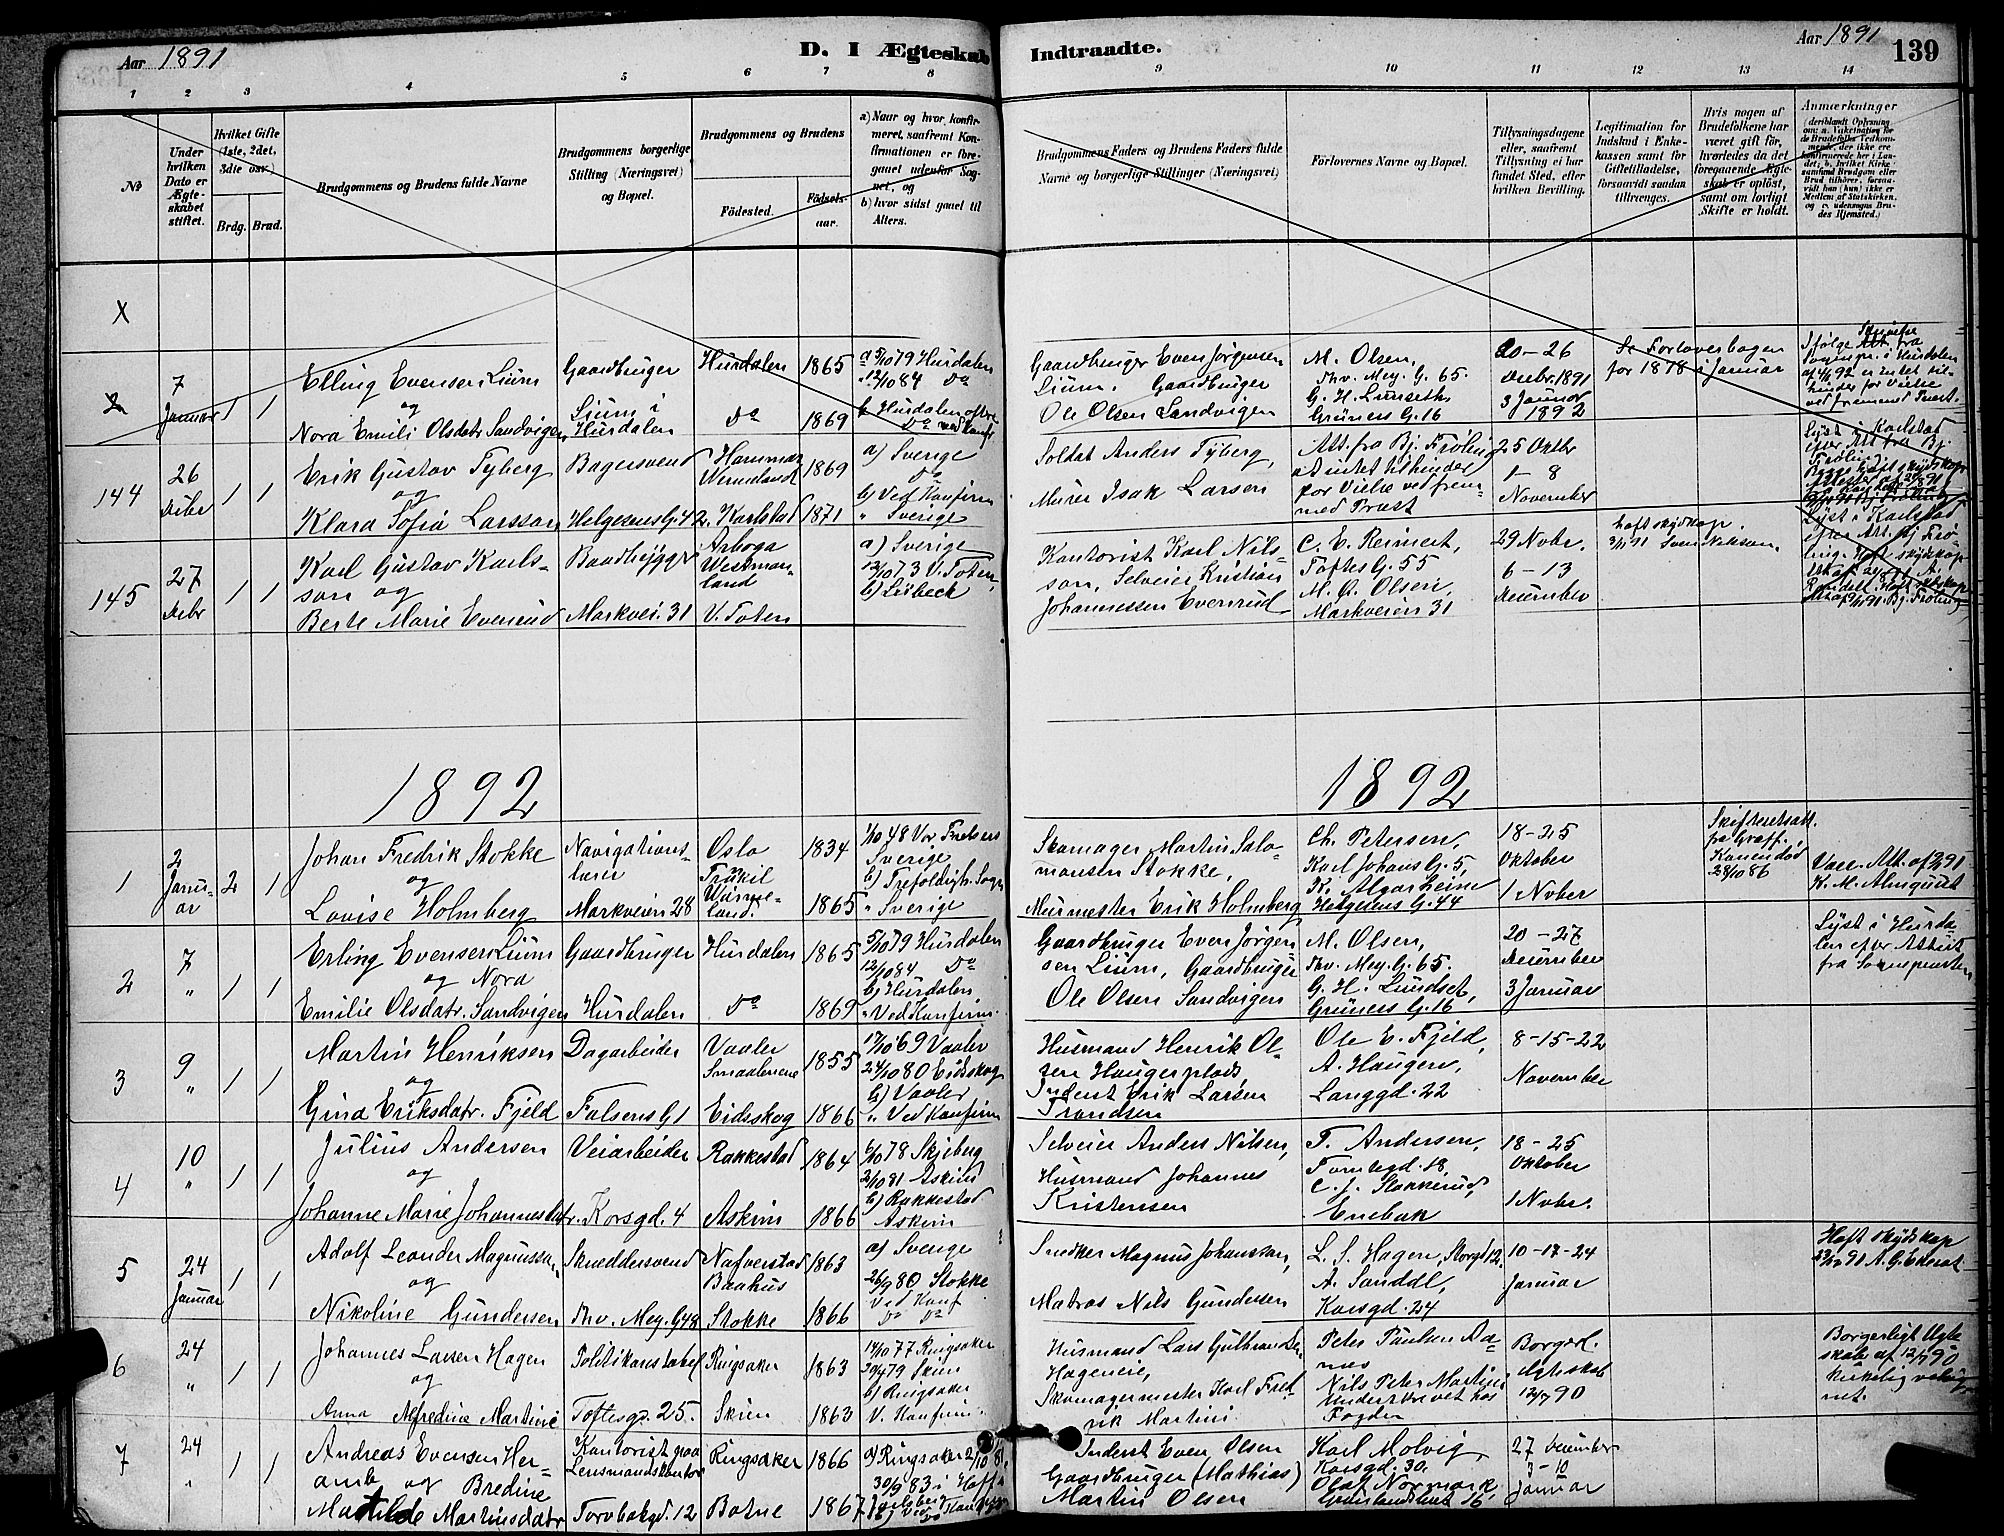 Aar 1891
D. I Ægteskab
Indtraadte.
Aar 1891
139
1 2 3 4 5 6 7 8 9 10 11 12 13 14
No
Under hvilken Dato er Ægteskabet stiftet.
Hvilket Gifte (1ste, 2det, 3die osv.)
Brdg. Brud.
Brudgommens og Brudens fulde Navne
Brudgommens borgerlige Stilling (Næringsvei) og Bopæl.
Brudgommens og Brudens
Fødested.
Fødselsaar.
a) Naar og hvor konfirmeret, saafremt Konfirmationen er foregaaet udenfor Sognet, og
b) hvor sidst gaaet til Alters.
Brudgommens Faders og Brudens Faders fulde Navne og borgerlige Stillinger (Næringsvei)
Forlovernes Navne og Bopæl.
Tillysningsdagene eller, saafremt Tillysning ei har fundet Sted, efter hvilken Bevilling.
Legitimation for Indskud i Enkekassen samt for Giftetilladelse, forsaavidt saadan tiltrænges.
Hvis nogen af Brudefolkene har været gift før, hvorledes da det foregaaende Ægteskab er opløst, samt om lovligt Skifte er holdt.
Anmærkninger
X
2
7 Januar
1 1
Elling Evensen Lium
og
Nora Emili Olsdatr Sandvigen
Gaardbruger
Lium i Hurdalen
Hurdalen 1865
Do 1869
a 5/10 79 Hurdalen
12/10 84 Do
b Hurdalen
Gaardbruger Even Jørgensen Lium. Gaardbruger
Ole Olsen Sandvigen
M. Olsen,
Thv. Mey. G. 65.
Grüners G. 16
20–26
Decbr. 1891
3 Januar
1892
Se Forloverbogen
for 1878 i Januar
144
26 Decbr
1 1
Erik Gustav Tyberg
og
Klara Sofia Larsson
Bagersvend
Helgesens G. 42.
Wermland 1869
Karlstad 1871
a) Sverige
Do
b) Ved Konfirm
" Sverige
Soldat Anders Tyberg,
Murer Isak Larsen
Att. fra Bj. Frøling
at intet til hinder
for Vielse ved fremmed Præst
25 Oktbr
1–8
November
145
27 Decbr
1 1
Karl Gustav Karlsson og
Berte Marie Evenrud
Baadbygger
Markvei. 31
Arboga
Westmanland
V. Toten
a) Sverige
12/10 73 V. Toten,
b) Lübeck
Kantorist Karl Nilsson, Selveier Kristian
Johannessen Evenrud
C. E. Reinert,
Toftes G. 55
M. A. Olsen,
Markveien 31
29 Novbr.
6–13
December
1892
1892
1
2 Januar
2 1
Johan Fredrik Stokke
og
Lovise Holmberg
Navigationslærer
Markveien 28
Oslo 1834
Wermeland. 1865
1/10 48 Vor Frelsers
Sverige
b) Trefoldigh. Sogn
" Sverige
Skomager Martin Salomonsen Stokke,
Murmester Erik Holmberg
Ch. Petersen,
Karl Johans G. 5,
Helgesens G. 44
18–25
Oktober
1 Nober
Skifteretsatt.
fra Græff.
Konen død
28/10 86
H. M. Almquist
2
7 "
1 1
Erling Evensen Lium
og Nora
Emilie Olsdatr. Sandvigen
Gaardbruger
Hurdalen
Hurdalen 1865
Do 1869
5/10 79 Hurdalen
12/10 84 Do
b) Hurdalen
" Ved Konfirm.
Gaardbruger Even Jørgensen Lium, Gaardbruger
Ole Olsen Sandvigen
M. Olsen,
Thv. Mey. G. 65.
G. H. Lundset,
Grüners G. 16
20–27
December
3 Januar
Lyst i Hurdalen efter Attest
fra Sognepresten
3
9 "
1 1
Martin Henriksen
og
Gina Eriksdatr. Fjeld
Dagarbeider
Falsens G 1
Vaaler
Smaalenene 1855
Eidsskog 1866
17/10 69 Vaaler
24/10 80 Eidskog
b) Vaaler
" Ved Konfirm
Husmand Henrik Olsen Haugerplads,
Inderst Erik Larsen
Trondsen
Ole E. Fjeld,
A. Haugen,
Langgd. 22
8–15–22
November
4
10 "
1 1
Julius Andersen
og
Johanne Marie Johannesdatr.
Veiarbeider
Korsgd. 4
Rakkestad 1864
Askim 1866
6/10 78 Skjeberg
2/10 81 Askim
b) Rakkestad
Askim
Selveier Anders Nilsen,
Husmand Johannes
Kristensen
T. Andersen,
Tomtegd. 18,
C. J. Stokkerud,
Enebak
18–25
Oktober
1 Nobr.
5
24 Januar
1 1
Adolf Leander Magnusson
og
Nikoline Gundersen
Skræddersvend
Thv. Mey. G 48
Nafverstad
Baahus 1863
Stokke 1866
a) Sverige
26/9 80 Stokke
Ved Konf
Do Do
Snedker Magnus Johansson,
Matros Nils Gundersen
L. S. Hagen, Storgd 12.
A. Sanddl,
Korsgd. 24
10–17–24
Januar
6
24 "
1 1
Johannes Larsen Hagen
og
Anna Alfredine Martini
Politikonstabel
Toftesg. 25.
Ringsaker 1863
Skien 1863
14/10 77 Ringsaker
20/4 79 Skien
b) Ringsaker
V. Konfirm.
Husmand Lars Guthormsen
Hageneie,
Skomagermester Karl Fredrik Martini.
Nils Peter Martini
Underskrevet hos
Fogden
Borgerl.
Ægteskab
12/7 90
Borgerligt Ægteskab af 12/7 90
7
24 "
1 1
Andreas Evensen Heramb og Bredine
Matilde Martinsdatr
Kontorist paa
Lensmandskontor
Torvbakgd. 12
Ringsaker 1866
Botne 1867
a) Ringsaker 2/10 81,
30/9 83 i Hoff
Inderst Even Olsen
Gaardbruger (Mathias)
Martin Olsen
Karl Molvig,
Korsgd. 30.
Olaf Normark,
Grønlandsleret 16
27 December
3–10
Januar